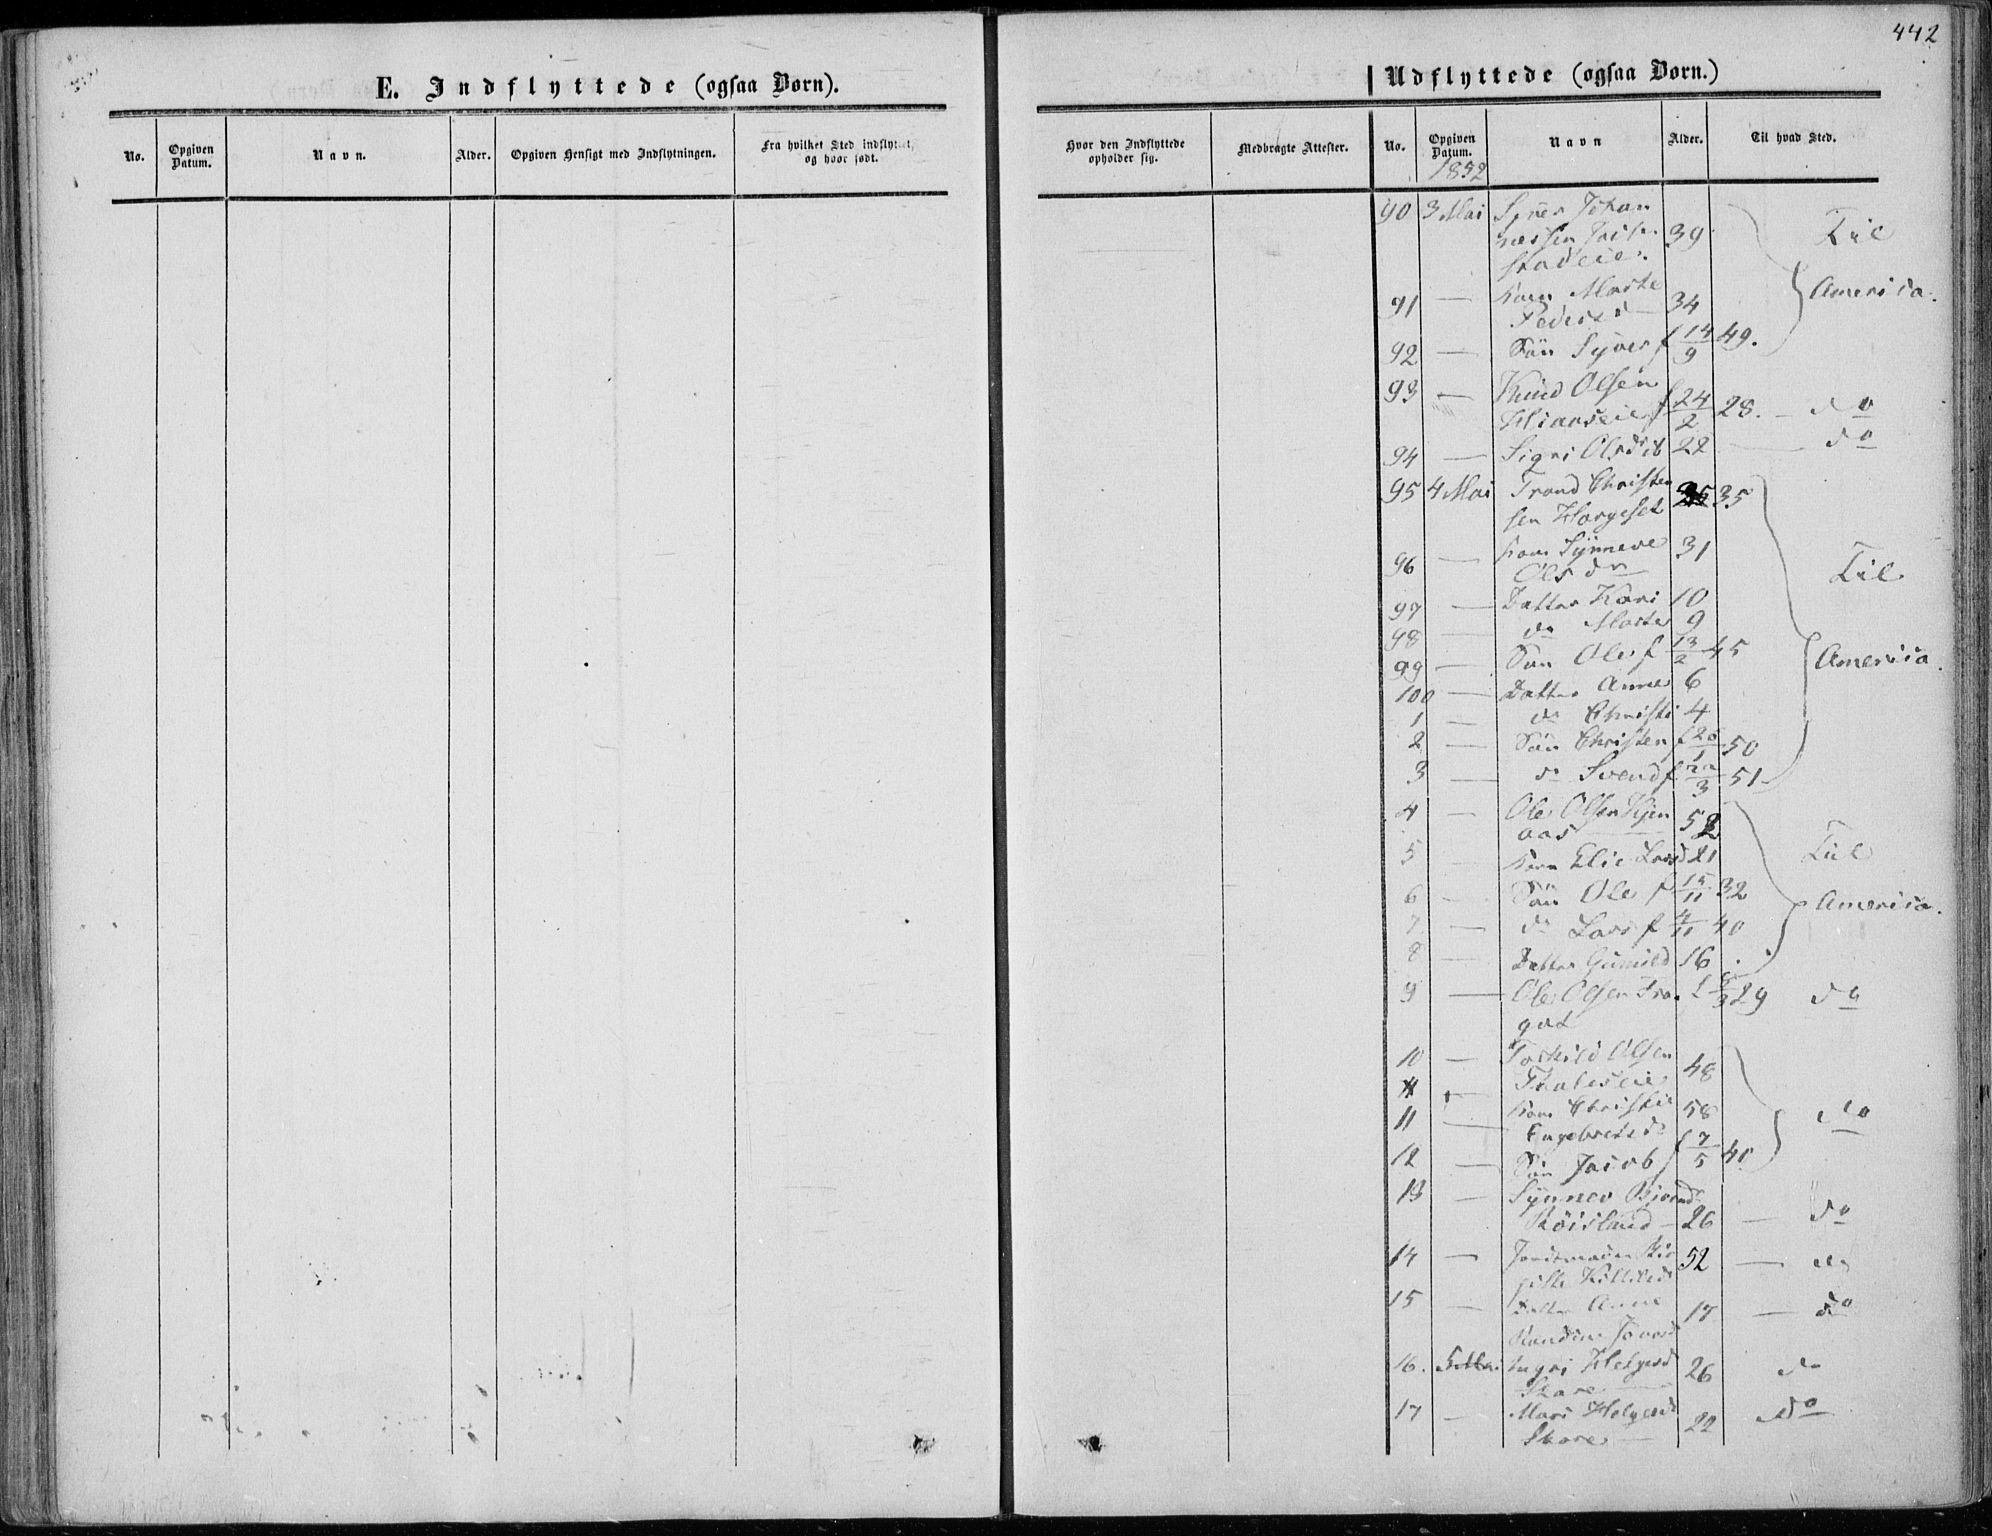 442
E. Indflyttede (ogsaa Børn).
No. Opgiven Datum. Navn. Alder. Opgiven Hensigt med Indflytningen. Fra hvilket Sted indflyttet, og hvor født.
Udflyttede (ogsaa Børn.)
Hvor den Indflyttede opholder sig. Medbragte Attester. No. Opgiven Datum. Navn Alder. Til hvad Sted.
1852
90 3 Mai Syver Johan
nessen 39 Til
stadeie.
91 — Kone Marte America.
Pedersd 34
92 — Søn Syver f 14/9 49.
93 — Knud Olsen
f 24/2 28. — do
94 — Sigri Olsd 22 — do
95 4 Mai Trond Christen
sen Horgeset 35
96 — Kone Synneve 31 Til
Olsdr
97 — Datter Kari 10
98 — do Marte 9
99 — Søn Ole f 13/2 45 America.
100 — Datter Anne 6
1 — do Christi 4
2 — Søn Christen f 26/1 50
3 — do Svend f 3 51
4 — Ole Olsen
aas 52
5 Kone Elie Larsd 21 Til
6 — Søn Ole f 15/11 32 America.
7 — do Lars f 4/11 40
8 — Datter Gunild 16
9 — Ole Olsen 29 do
10 — Torkild Olsen 48
11 — Kone Christie 58 do
Engebretsd
12 — Søn Jacob f 7/5 40
13 — Synnev Bjørnsd
Røisland — 26 — do
14 — Jordemoder 52 — do
15 — Datter Anne 17 — do
16. 5 Mai Ingri Helgesd 26 do
Skare
17 — Mari Helgesd 22 do
Skare —